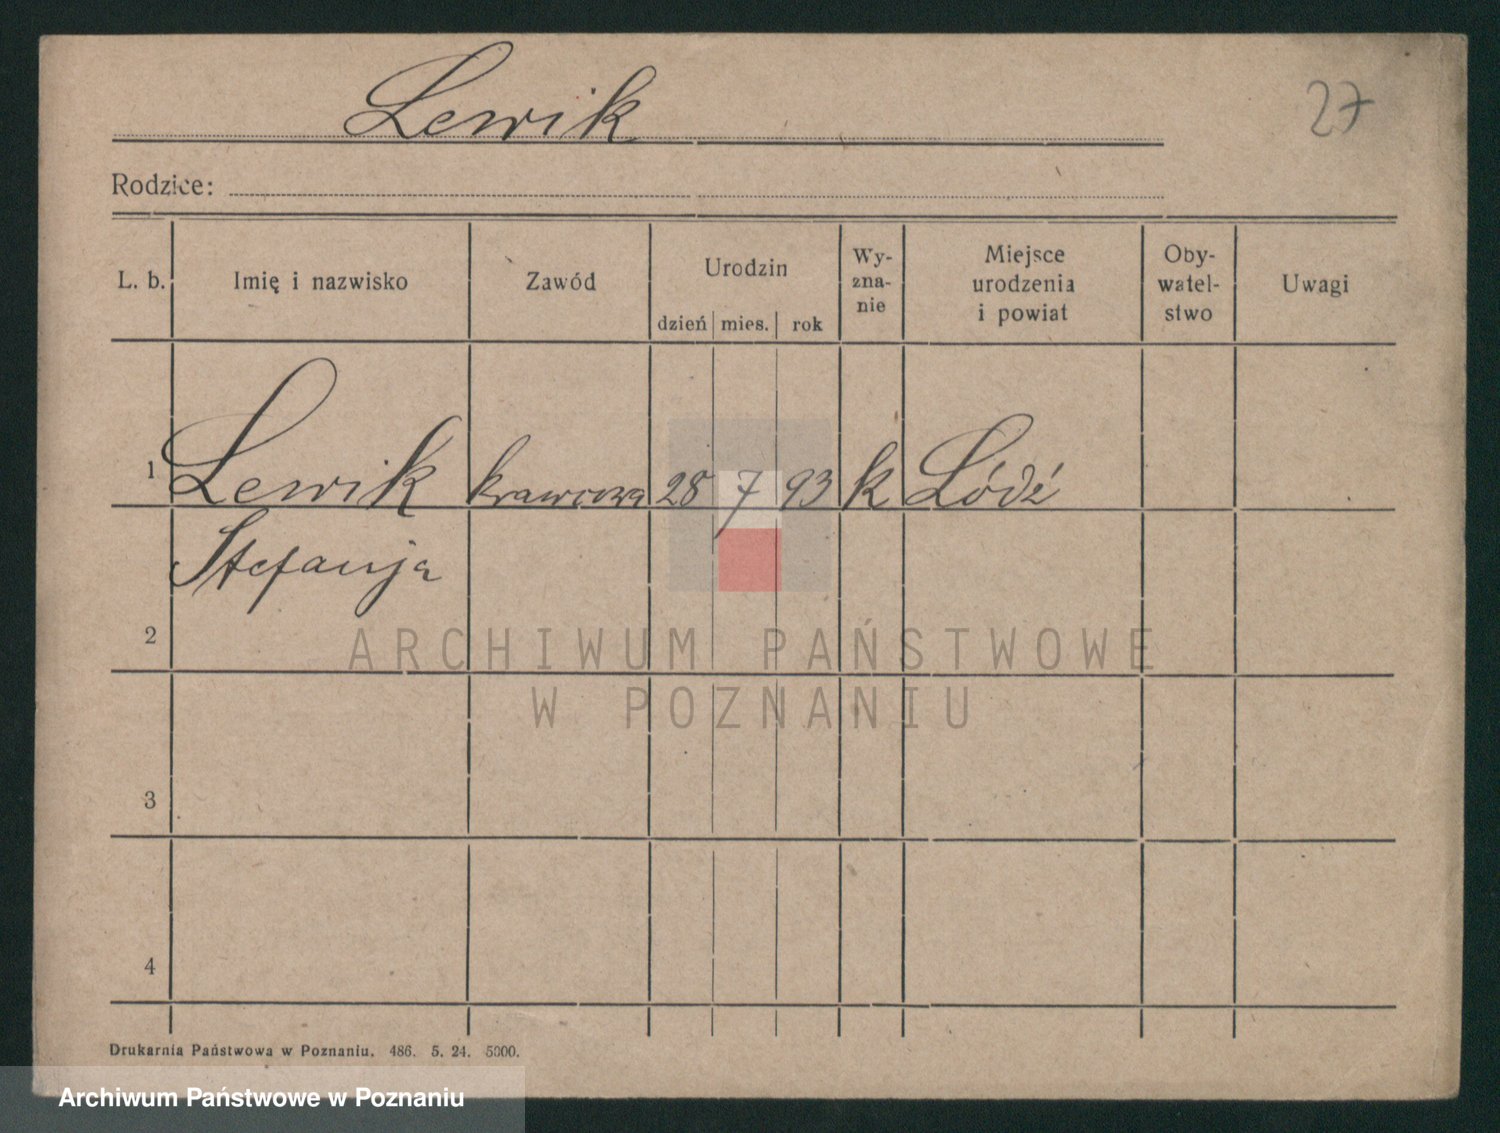 Lewik
27
Rodzice:
L. b.
Imię i nazwisko
Zawód
Urodzin
dzień mies. rok
Wy-
zna-
nie
Miejsce
urodzenia
i powiat
Oby-
watel-
stwo
Uwagi
1 Lewik krawcowa 28 7 93 k Łódź
Stefanja
2
ARCHIWUM PAŃSTWOWE
W POZNANIU
3
4
Drukarnia Państwowa w Poznaniu. 486. 5. 24. 5000.
Archiwum Państwowe w Poznaniu